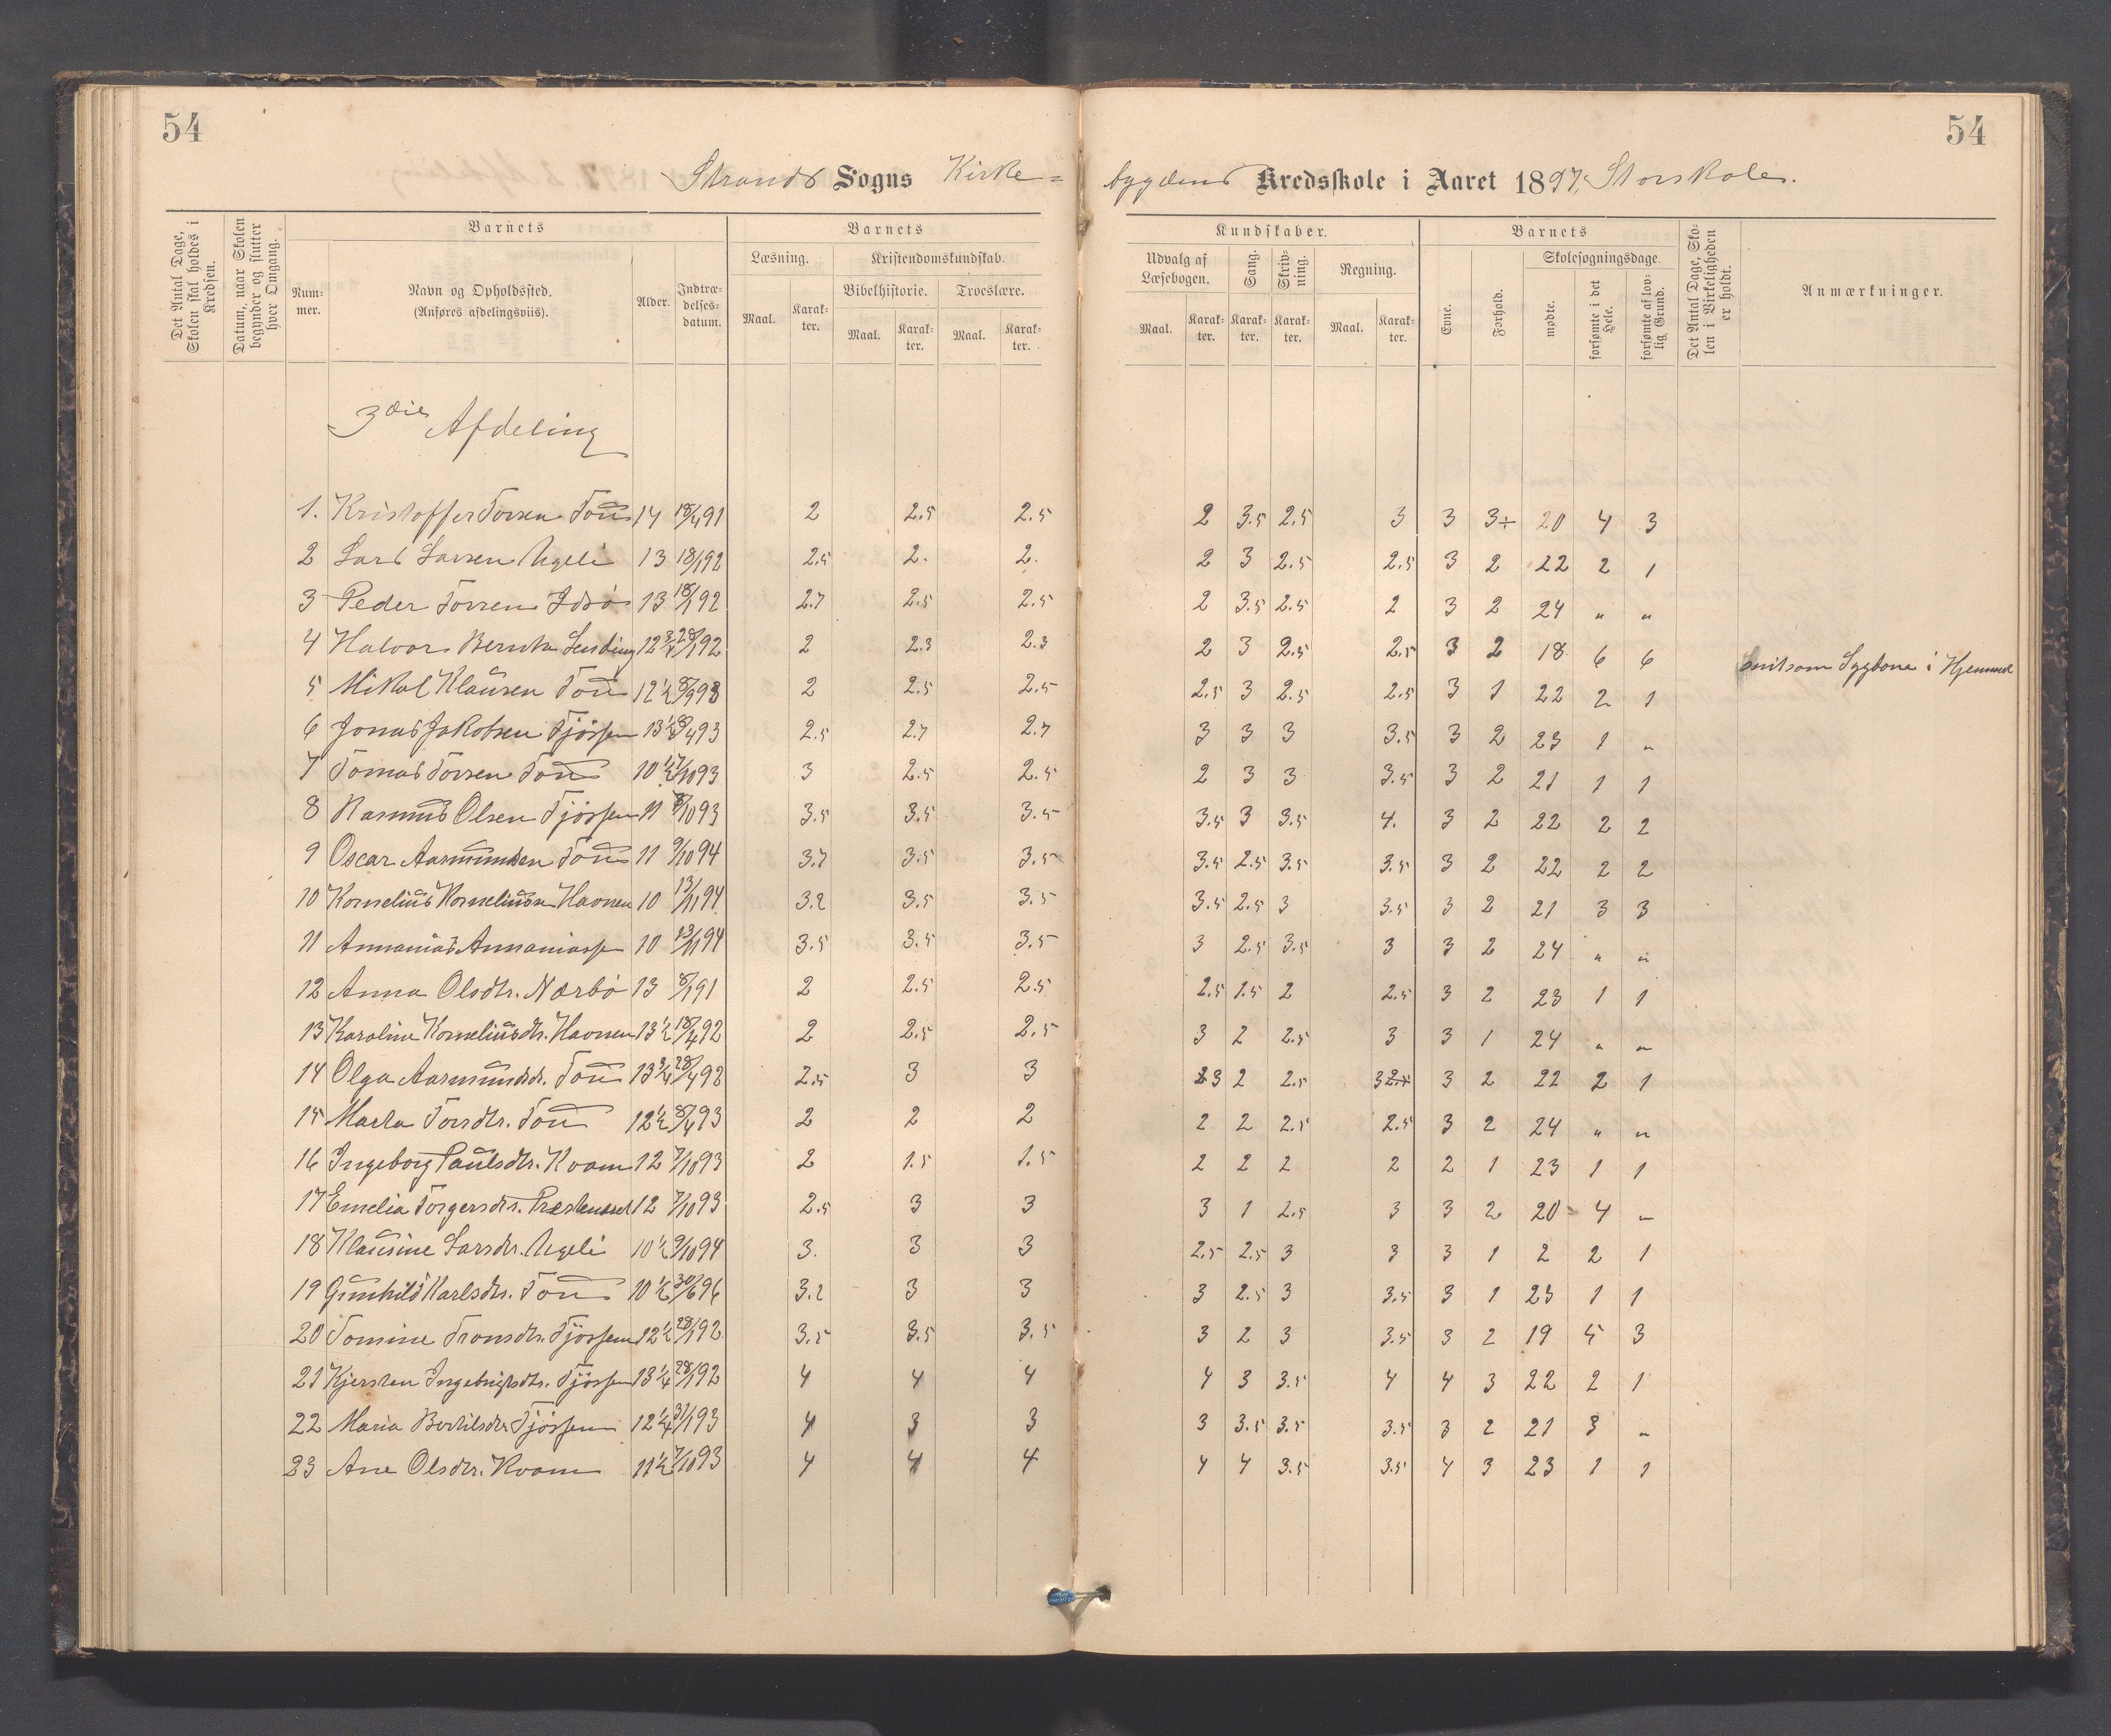 54
54
Strands Sogns Kirke=
bygdens Kredsskole i Aaret 1897, Storskolen.
Det Antal Dage, Skolen skal holdes i Kredsen.
Datum, naar Skolen begynder og slutter hver Omgang.
Barnets
Num-mer.
Navn og Opholdssted.
(Anføres afdelingsviis).
Alder.
Indtræ-delses-datum.
Barnets
Læsning.
Maal.
Karak-ter.
Kristendomskundskab.
Bibelhistorie.
Maal.
Karak-ter.
Troeslære.
Maal.
Karak-ter.
Kundskaber.
Udvalg af Læsebogen.
Maal.
Karak-ter.
Sang.
Karak-ter.
Skriv-ning.
Karak-ter.
Regning.
Maal.
Karak-ter.
Barnets
Evne.
Forhold.
Skolesøgningsdage.
mødte.
forsømte i det Hele.
forsømte af lov-lig Grund.
Det Antal Dage, Sko-len i Virkeligheden er holdt.
Anmærkninger.
3die Afdeling
1. Kristoffer Torsen Tou 14 18/4 91 2 2.5 2.5 2 3.5 2.5 3 3 3÷ 20 4 3
2 Lars Larsen Ugeli 13 18/1 92 2.5 2. 2. 2 3 2.5 2.5 3 2 22 2 1
3 Peder Torsen Idsø 13 18/1 92 2.7 2.5 2.5 2 3.5 2.5 2 3 2 24 " "
4 Halvor Berntsen 12 3/4 28/1 92 2 2.3 2.3 2 3 2.5 2.5 3 2 18 6 6 i Hjemmet
5 Mikal Klausen Tou 12 1/2 2 2.5 2.5 2.5 3 2.5 2.5 3 1 22 2 1
6 Jonas Jakobsen Tjøssem 13 1/2 8/4 93 2.5 2.7 2.7 3 3 3 3.5 3 2 23 1 "
7 Tomas Torsen Tou 10 1/2 7/10 93 3 2.5 2.5 2 3 3 3.5 3 2 21 1 1
8 Rasmus Olsen Tjøssem 11 7/10 93 3.5 3.5 3.5 3.5 3 3.5 4. 3 2 22 2 2
9 Oscar Aasmundsen Tou 11 9/10 94 3.7 3.5 3.5 3.5 2.5 3.5 3.5 3 2 22 2 2
10 Kornelius Korneliusen Havnen 10 13/11 94 3.2 3.5 3.5 3.5 2.5 3 3.5 3 2 21 3 3
11 Annanias Annaniassen 10 13/11 94 3.5 3.5 3.5 3 2.5 3.5 3 3 2 24 " "
12 Anna Olsdtr. Nærbø 13 8/1 91 2 2.5 2.5 2.5 1.5 2 2.5 3 2 23 1 1
13 Karoline Korneliusdtr. Havnen 13 1/2 18/4 92 2 2.5 2.5 3 2 2.5 3 3 1 24 " "
14 Olga Aasmundsdr. Tou 13 3/4 28/4 92 2.5 3 3 3 2 2.5 3 3 2 22 2 1
15 Marta Torsdtr. Tou 12 1/2 8/4 93 2 2 2 2 2 2.5 2.5 3 2 24 " "
16 Ingeborg Paulsdtr. Kvam 12 7/10 93 2 1.5 1.5 2 2 2 2 2 1 23 1 1
17 Emelia Torgersdtr. 12 7/10 93 2.5 3 3 3 1 2.5 3 3 2 20 4 "
18 Klausine Larsdtr. Ugeli 10 1/2 9/10 94 3. 3 3 2.5 2.5 3 3 3 1 2 2 1
19 Gunhild Karlsdtr. Tou 10 1/2 30/6 96 3.2 3 3 3 2.5 3 3.5 3 1 23 1 1
20 Tomine Tronsdtr. Tjøssem 12 1/2 28/1 92 3.5 3.5 3.5 3 2 3 3.5 3 2 19 5 3
21 Kjersten Ingebrigtsdtr. Tjøssem 13 1/4 28/1 92 4 4 4 4 3 3.5 4 4 3 22 2 1
22 Maria Bertilsdtr. Tjøssem 12 1/4 31/1 93 4 3 3 3 3.5 3.5 3.5 3 2 21 3 "
23 Ane Olsdtr. Kvam 11 1/2 7/10 93 4 4 4 4 4 3.5 3.5 4 3 23 1 1